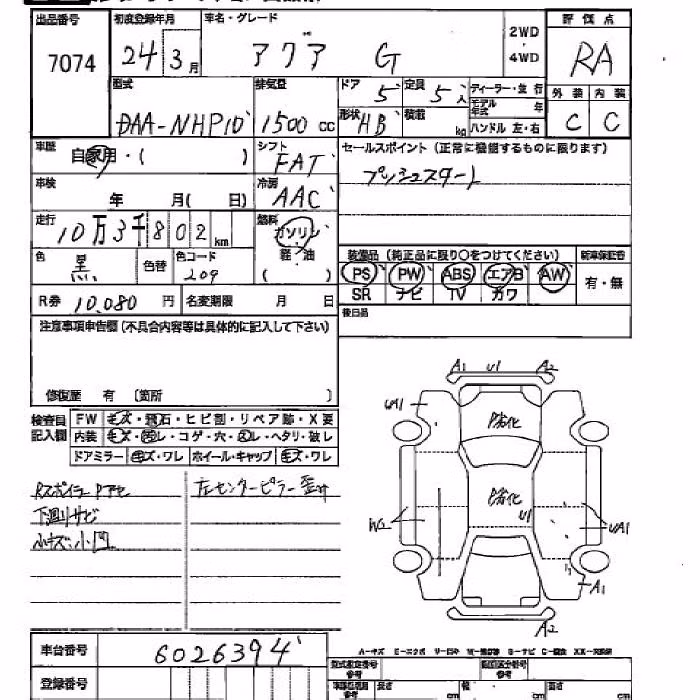 出品番号 初度登録年月 車名・グレード 2WD 4WD 評価点
7074 24 3月 アクア G RA
型式 排気量 ドア 5 定員 5人 ディーラー・並行 外装 内装
モデル年式 年
DAA-NHP10 1500cc 形状 HB 積載 kg ハンドル 左・右 C C
車歴 自家用・( ) シフト FAT セールスポイント(正常に機能するものに限ります)
車検 年 月( 日) 冷房 AAC プッシュスタート
走行 10万3千802km 燃料 ガソリン
軽・油
( )
色 黒 色替 色コード 209
装備品(純正品に限り○をつけてください) 新車保証書
PS PW ABS エアB AW 有・無
SR ナビ TV カワ
R券 10,080円 名変期限 月 日
後日品
注意事項申告欄(不具合内容等は具体的に記入して下さい)
修復歴 有 〔箇所 〕
検査員記入欄 FW キズ・飛石・ヒビ割・リペア跡・X要
内装 キズ・汚レ・コゲ・穴・スレ・ヘタリ・破レ
ドアミラー キズ・ワレ ホイール・キャップ キズ・ワレ
Rスポイラー Pアセ 左センターピラー歪ミ
下廻リサビ
小キズ・小凹
A1 U1 A2
UA1 P劣化
P劣化
W2 U1 UA1
A1
A2
車台番号 6026394
登録番号
A-キズ E-エクボ U-凹み W-補修跡 S-サビ C-腐食 XX-交換済
型式指定番号 類別区分番号
参考 参考
長さ cm 幅 cm 高さ cm
参考 参考 参考